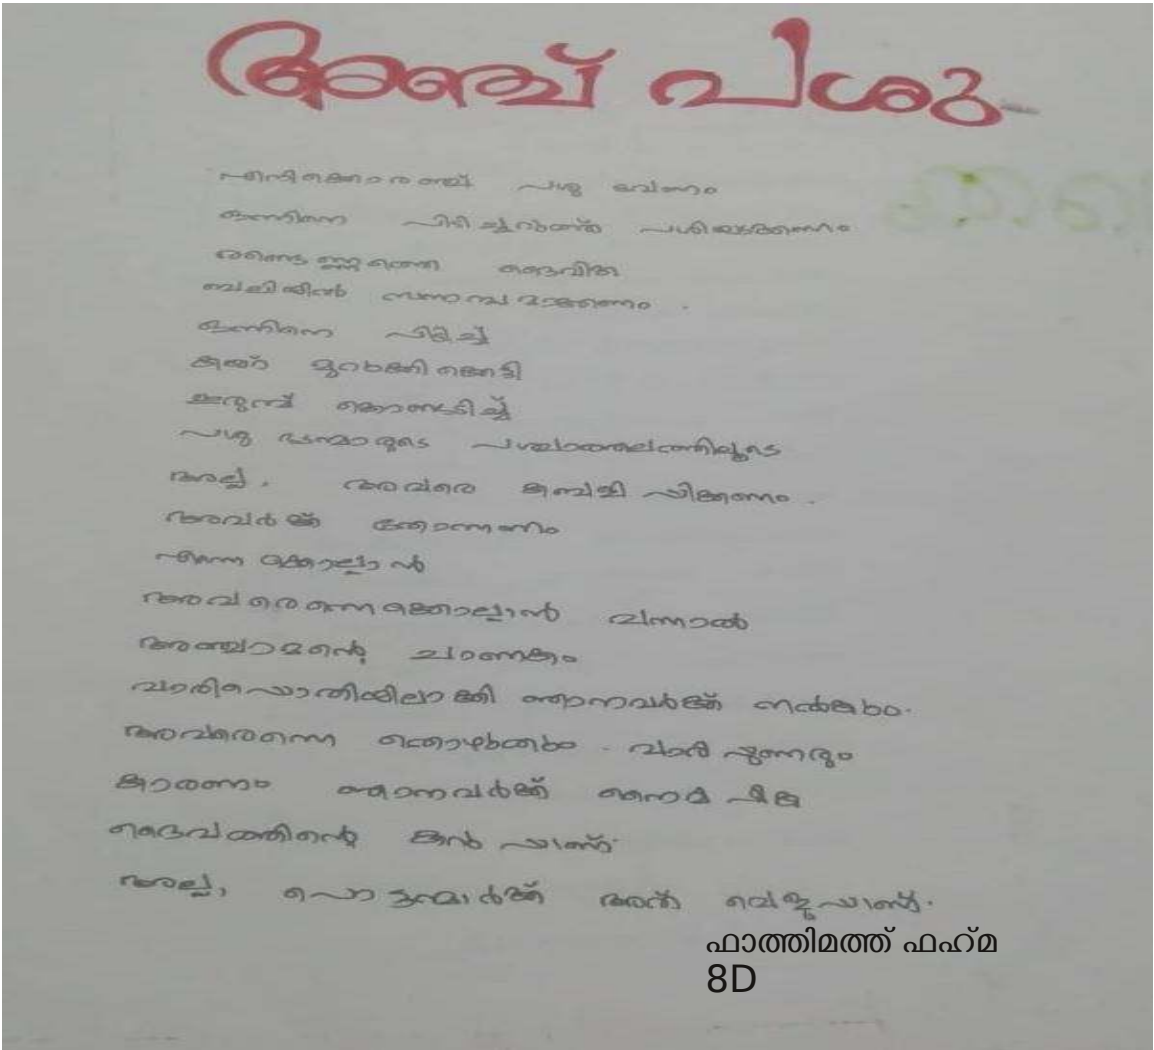 അഞ്ച് പശു
എനിക്കൊരഞ്ച് പശു വേണം
ഒന്നിനെ പിടിച്ചറുത്ത് പശിയടക്കണം
രണ്ടെണ്ണത്തെ ദൈവിക
ബലിയിൽ സമ്പന്നമാക്കണം.
ഒന്നിനെ പിടിച്ച്
കയർ മുറുക്കിക്കെട്ടി
ഇരുമ്പ് കൊണ്ടടിച്ച്
പശു ഭടന്മാരുടെ പശ്ചാത്തലത്തിലൂടെ
അല്ല, അവരെ കബളിപ്പിക്കണം.
അവർക്ക് തോന്നണം
എന്നെ കൊല്ലാൻ
അവരെന്നെ കൊല്ലാൻ വന്നാൽ
അഞ്ചാമന്റെ ചാണകം
വാരിപ്പൊതിയിലാക്കി ഞാനവർക്ക് നൽകും.
അവരെന്നെ തൊഴുകും. വാരിപ്പുണരും
കാരണം ഞാനവർക്ക് നൽകിയത്
ദൈവത്തിന്റെ
അല്ല, പൊട്ടന്മാർക്ക് അത്
ഫാത്തിമത്ത് ഫഹ്മ
8D